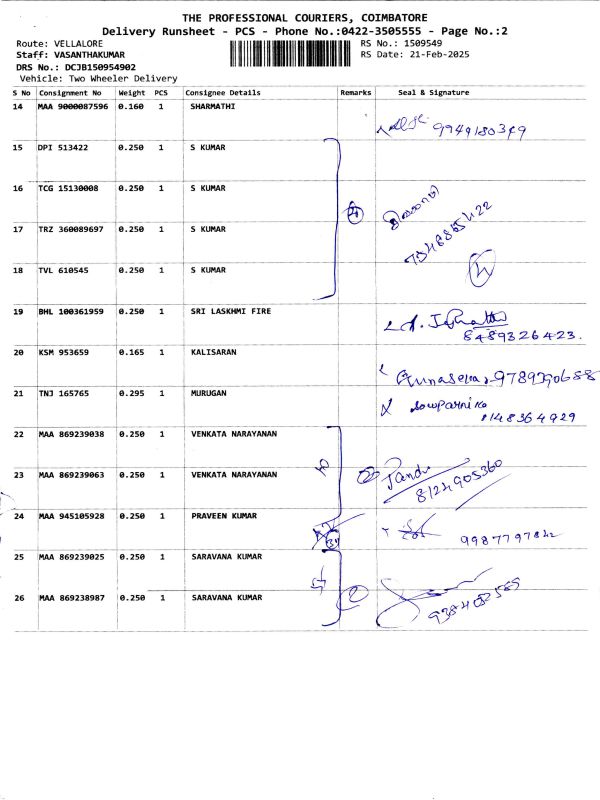 THE PROFESSIONAL COURIERS, COIMBATORE
Delivery Runsheet - PCS - Phone No.:0422-3505555 - Page No.:2
Route: VELLALORE RS No.: 1509549
Staff: VASANTHAKUMAR RS Date: 21-Feb-2025
DRS No.: DCJB150954902
Vehicle: Two Wheeler Delivery
S No Consignment No Weight PCS Consignee Details Remarks Seal & Signature
14 MAA 9000087596 0.160 1 SHARMATHI
15 DPI 513422 0.250 1 S KUMAR
16 TCG 15130008 0.250 1 S KUMAR
17 TRZ 360089697 0.250 1 S KUMAR
18 TVL 610545 0.250 1 S KUMAR
19 BHL 100361959 0.250 1 SRI LASKHMI FIRE
8489326423.
20 KSM 953659 0.165 1 KALISARAN
21 TNJ 165765 0.295 1 MURUGAN
Sowparnika
22 MAA 869239038 0.250 1 VENKATA NARAYANAN
23 MAA 869239063 0.250 1 VENKATA NARAYANAN
8124905360
24 MAA 945105928 0.250 1 PRAVEEN KUMAR
25 MAA 869239025 0.250 1 SARAVANA KUMAR
26 MAA 869238987 0.250 1 SARAVANA KUMAR